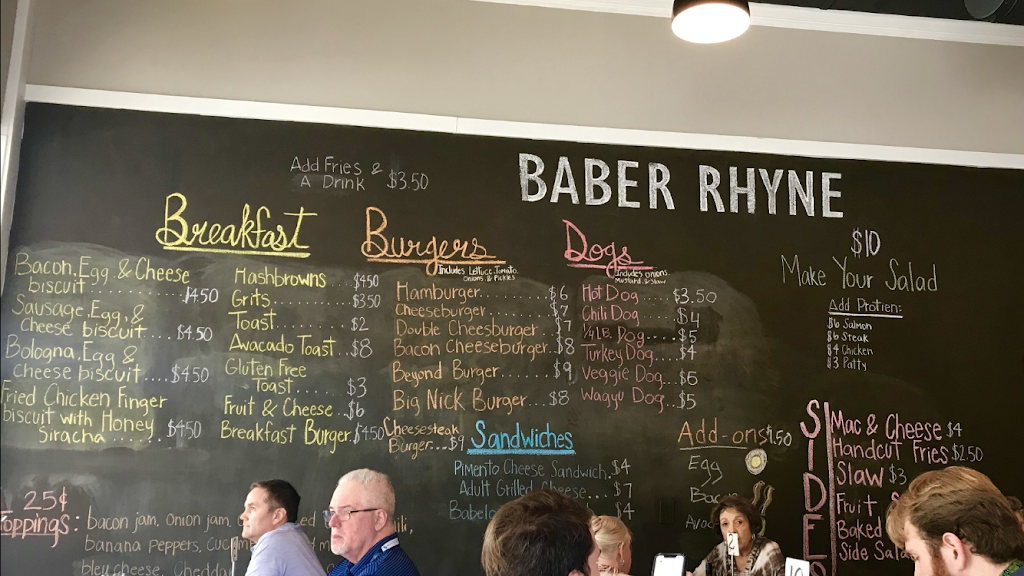 BABER RHYNE
Add Fries &
A Drink $3.50
Breakfast
Bacon, Egg & Cheese
biscuit ........ $4.50
Sausage, Egg, &
Cheese biscuit .... $4.50
Bologna, Egg &
Cheese biscuit .... $4.50
Fried Chicken Finger
biscuit with Honey
Siracha ....... $4.50
Hashbrowns ... $4.50
Grits ........ $3.50
Toast ........ $2
Avacado Toast .. $8
Gluten Free
Toast ....... $3
Fruit & Cheese .. $6
Breakfast Burger. $4.50
Burgers
Includes Lettuce, Tomato,
Onions & Pickles
Hamburger ........ $6
Cheeseburger ....... $7
Double Cheesburger .. $7
Bacon Cheeseburger .. $8
Beyond Burger ...... $9
Big Nick Burger .... $8
Cheesesteak
Burger... $9
Dogs
Includes onions,
Mustard, & Slaw
Hot Dog ..... $3.50
Chili Dog ..... $4
1/4 LB. Dog .... $5
Turkey Dog ... $4
Veggie Dog ... $5
Wagyu Dog ... $5
$10
Make Your Salad
Add Protien:
$6 Salmon
$6 Steak
$4 Chicken
$3 Patty
Sandwiches
Pimento Cheese Sandwich. $4
Adult Grilled Cheese ... $7
$4
Add-ons $1.50
Egg
SIDES
Mac & Cheese $4
Handcut Fries $2.50
Slaw $3
Fruit
Baked
Side
25¢
Toppings: bacon jam, onion jam,
banana peppers,
bleu cheese,
2